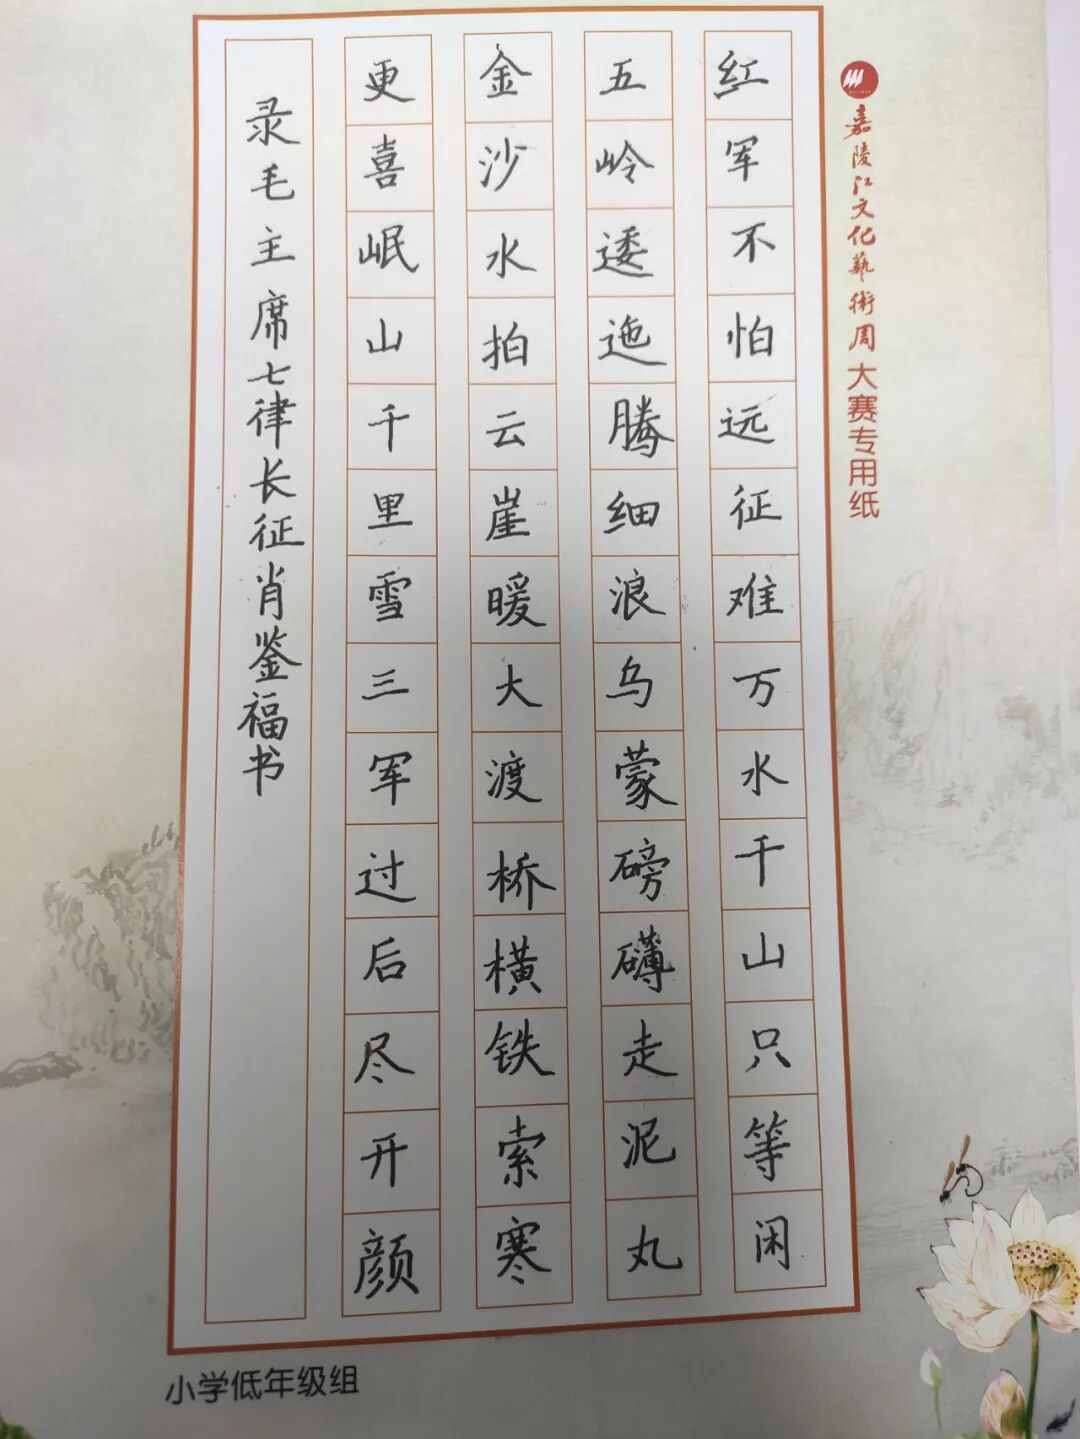 嘉陵江文化艺術周大赛专用纸
红军不怕远征难万水千山只等闲
五岭逶迤腾细浪乌蒙磅礴走泥丸
金沙水拍云崖暖大渡桥横铁索寒
更喜岷山千里雪三军过后尽开颜
录毛主席七律长征肖鉴福书
小学低年级组